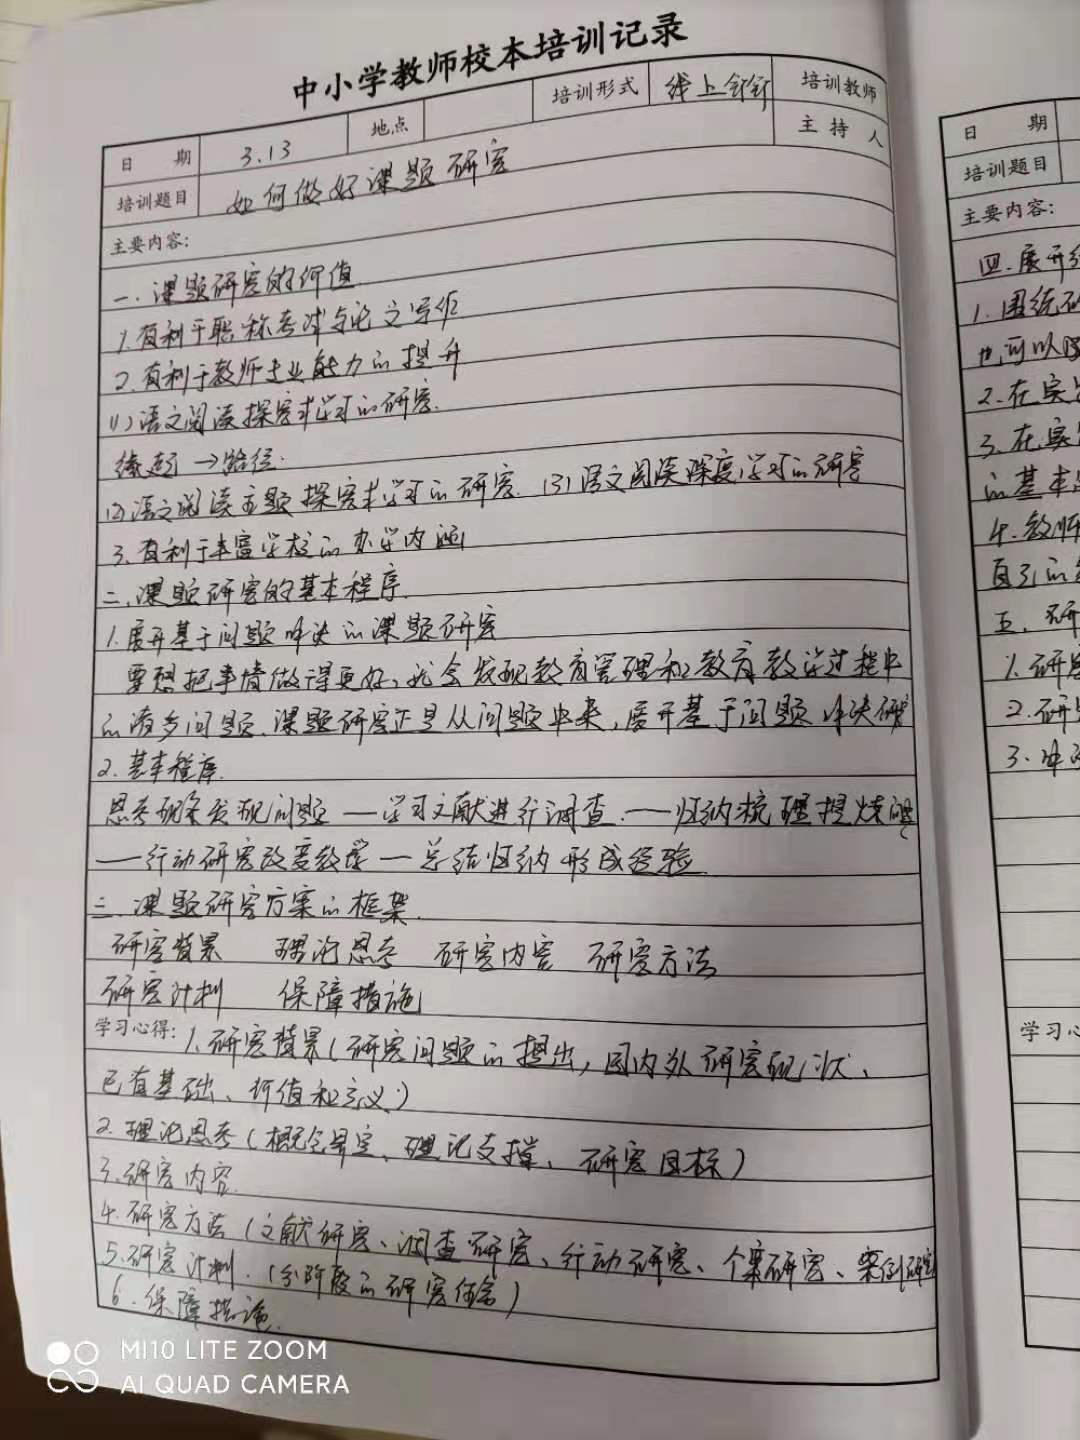 中小学教师校本培训记录
日 期 3.13 地点 培训形式 线上钉钉 培训教师
主 持 人
培训题目 如何做好课题研究
主要内容：
一.课题研究的价值
1.有利于职称考评与论文写作
2.有利于教师专业能力的提升
(1)语文阅读探究式学习的研究.
缘起→路径.
(2)语文阅读主题探究式学习的研究. (3)语文阅读深度学习的研究
3.有利于丰富学校的办学内涵
二.课题研究的基本程序.
1.展开基于问题解决的课题研究
要想把事情做得更好、就会发现教育管理和教育教学过程中
的诸多问题.课题研究正是从问题中来,展开基于问题解决研究
2.基本程序.
思考现象发现问题——学习文献进行调查.——归纳梳理提炼问题
——行动研究改变教学—总结归纳形成经验.
三.课题研究方案的框架.
研究背景 理论思考 研究内容 研究方法
研究计划 保障措施
学习心得：1.研究背景(研究问题的提出,国内外研究现状、
已有基础、价值和意义)
2.理论思考(概念界定、理论支撑、研究目标)
3.研究内容.
4.研究方法(文献研究、调查研究、行动研究、个案研究、案例研究
5.研究计划.(分阶段的研究任务)
6.保障措施.
日 期
培训题目
主要内容：
四.展开
1.围绕研
也可以
2.在实
3.在实
的基本
4.教师
自己的
五.研
1.研究
2.研究
3.
学习心
MI10 LITE ZOOM
AI QUAD CAMERA